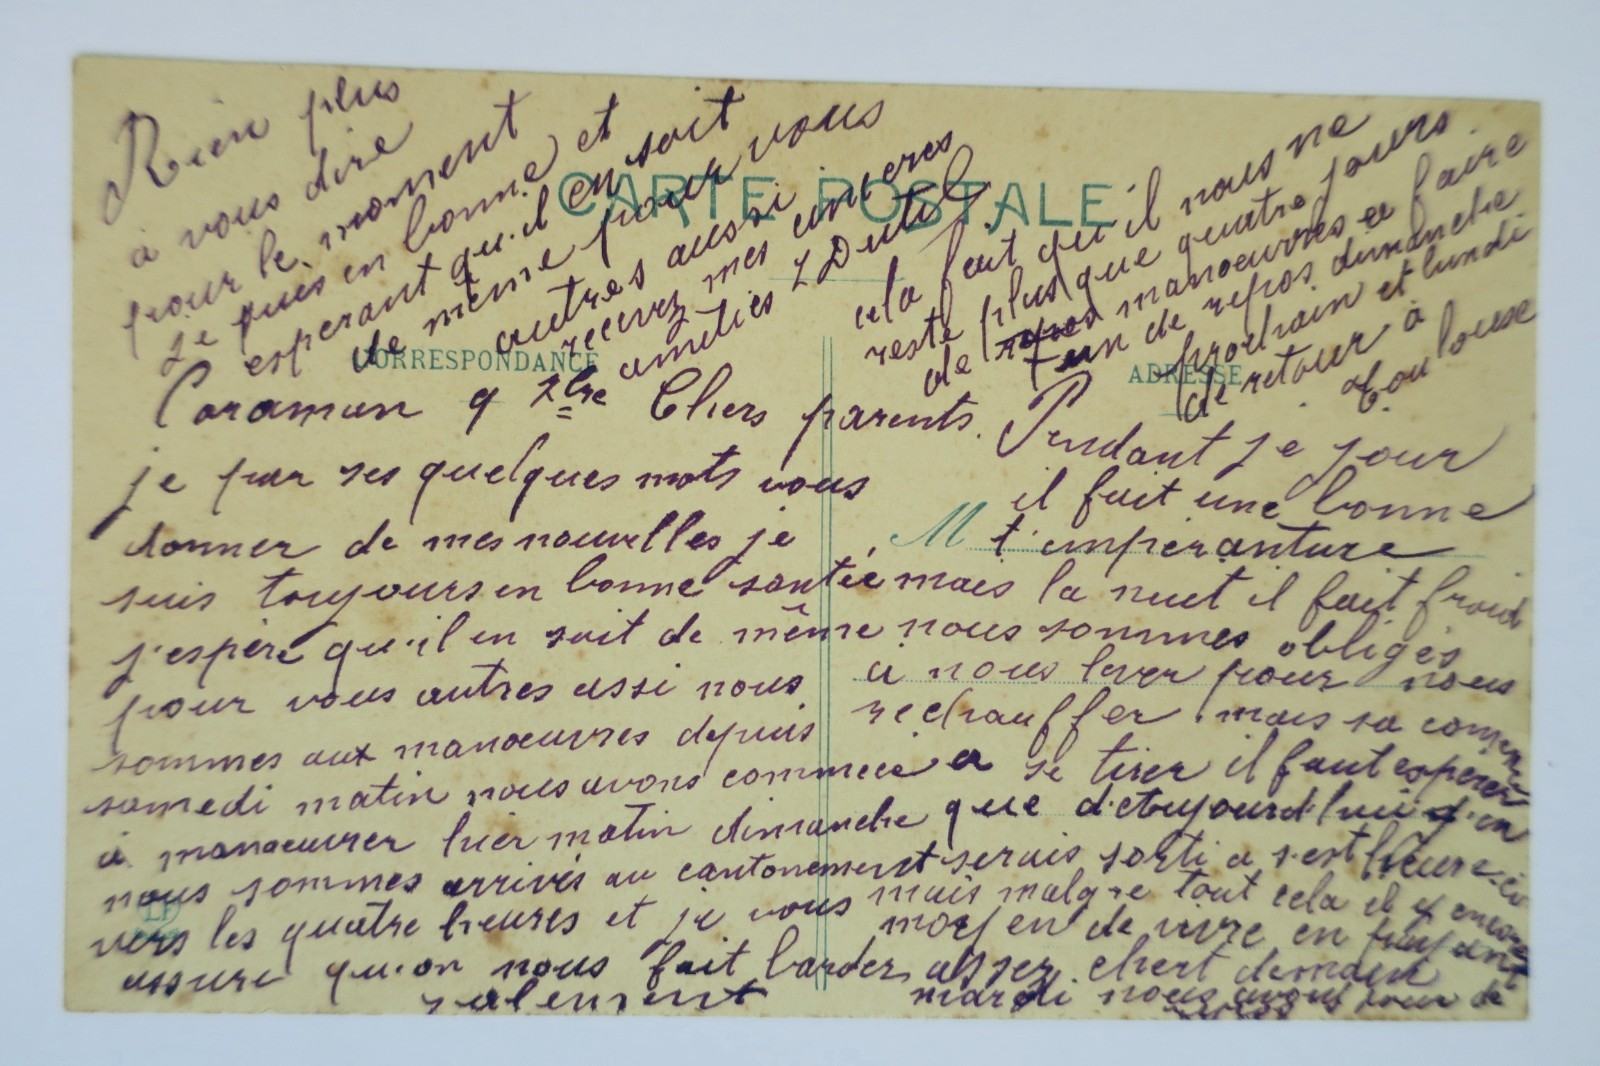 CARTE POSTALE
CORRESPONDANCE
ADRESSE
Caraman 9 Xbre Chers parents.
je par ses quelques mots vous
donner de mes nouvelles je
suis toujours en bonne santée
j'espère qu'il en soit de même
pour vous autres assi nous
sommes aux manoeuvres depuis
samedi matin nous avons commecé
a manoeuvrer hier matin dimanche
nous sommes arrivés au cantonement
vers les quatre heures et je vous
assure qu'on nous fait barder
salement
Pendant le jour
il fait une bonne
M t'emperanture
mais la nuit il fait froid
nous sommes obligés
a nous lever pour nous
rechauffer mais sa comence
a se tirer il faut esperer
que d'etoujourd'hui d'en
serais sorti a s'est heure-ci
mais malgre tout cela il y encore
moyen de vivre en payant
assez chert demain
mardi nous avons jour de
repos
cela fait qu'il nous ne
reste plus que quatre jours
de manoeuvres a faire
un de repos dimanche
prochain et lundi
de retour à
Toulouse
Rien plus
à vous dire
pour le moment
je suis en bonne et
esperant qu'il en soit
de même pour vous
autres aussi
recevez mes sinceres
amities Dutil
LF